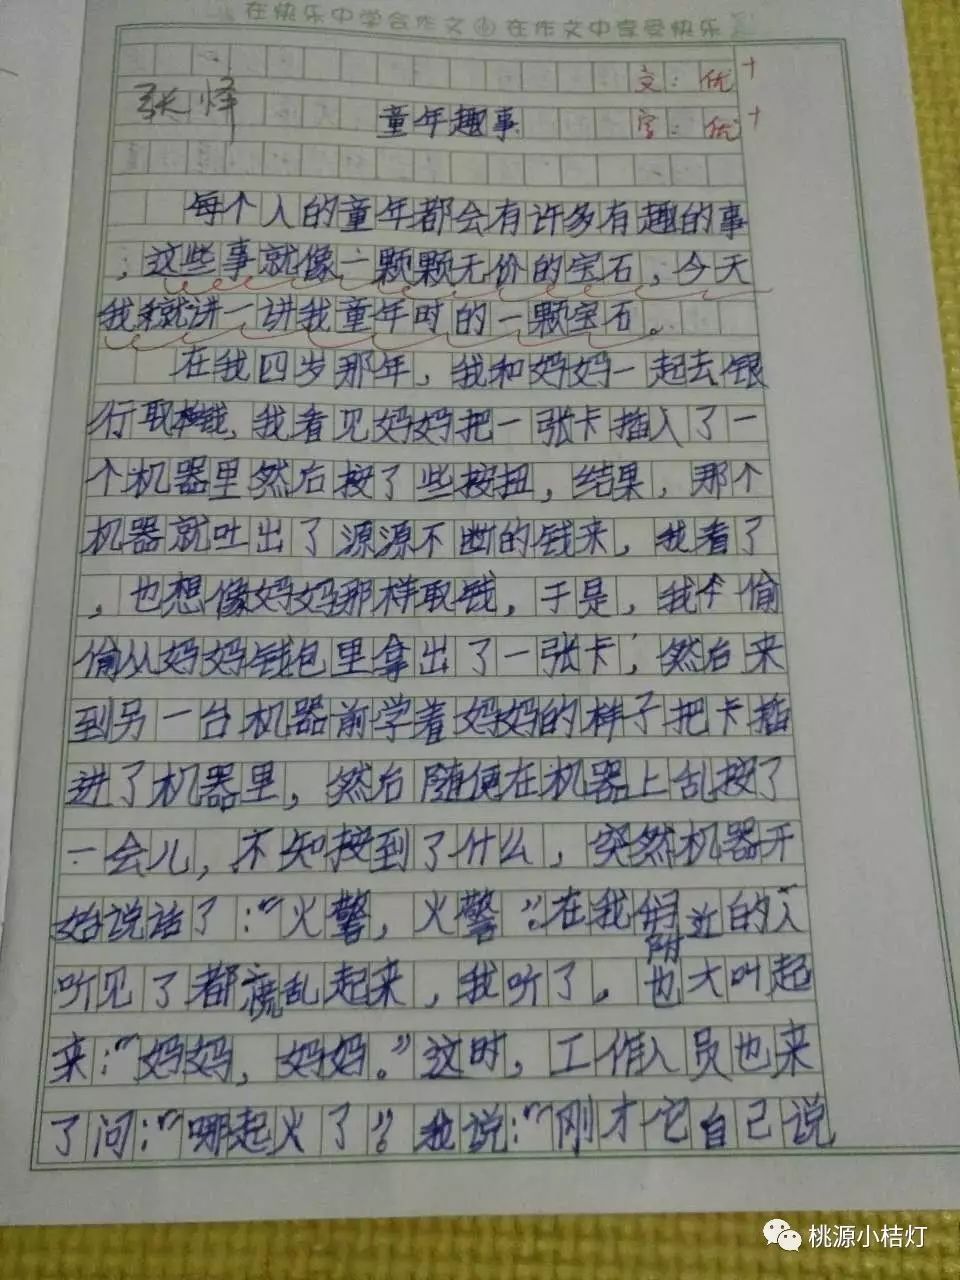 在快乐中学会作文 在作文中享受快乐
文：优+
张怿
童年趣事
字：优+
每个人的童年都会有许多有趣的事
；这些事就像一颗颗无价的宝石，今天
我就讲一讲我童年时的一颗宝石。
在我四岁那年，我和妈妈一起去银
行取钱，我看见妈妈把一张卡插入了一
个机器里然后按了些按扭，结果，那个
机器就吐出了源源不断的钱来，我看了
，也想像妈妈那样取钱，于是，我偷
偷从妈妈钱包里拿出了一张卡，然后来
到另一台机器前学着妈妈的样子把卡插
进了机器里，然后随便在机器上乱按了
一会儿，不知按到了什么，突然机器开
始说话了：“火警，火警”在我附近的人
听见了都慌乱起来，我听了。也大叫起
来：“妈妈，妈妈。”这时，工作人员也来
了问：“哪起火了？”我说：“刚才它自己说
桃源小桔灯